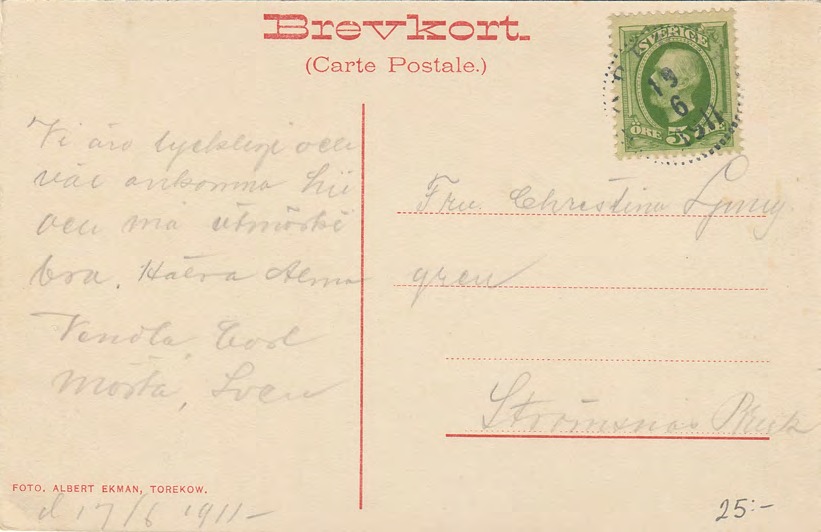 Brevkort.
(Carte Postale.)
SVERIGE
19
6
1911
ÖRE 5
Vi äro lyckligt och
väl ankomna hit
och må utmärkt
bra.
Märta, Sven
Fru. Christina Ljung
gren
Strömsnäs Bruk
FOTO. ALBERT EKMAN, TOREKOW.
d 17/6 1911-
25:-